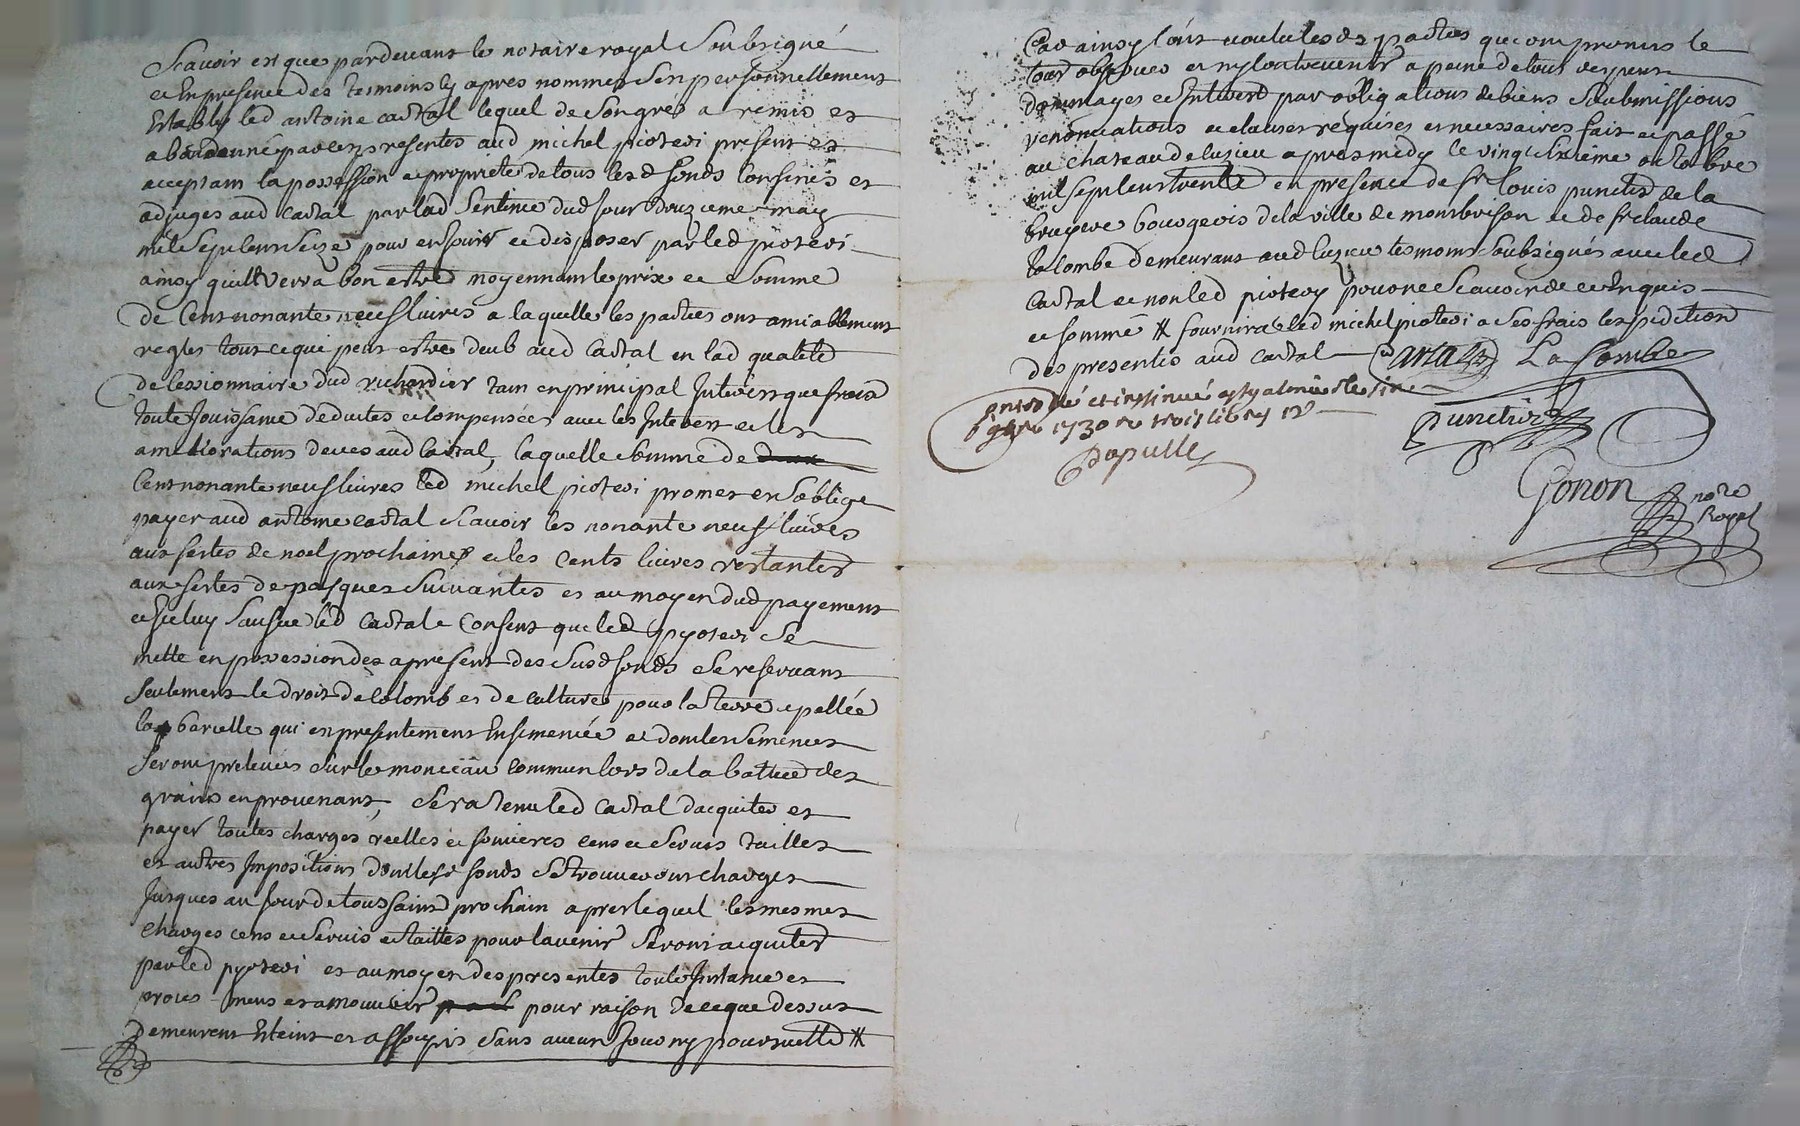 Scavoir est que pardevant le notaire royal Soubsigné
et En presence des tesmoins cy apres nommes sest personnellement
Estably led antoine cartal lequel de son gré a remis et
abandonné par ces presentes aud michel pioteri present et
acceptant la possession et proprieté de tous les d fonds confinés et
adjuges aud cartal par lad Sentence dud jour douzieme may
mil sept cent seize pour en jouir et disposer par led pioteri
ainsy quil verra bon estre moyennant le prix et Somme
de Cent nonante neuf livres a laquelle les parties ont amiablement
regler tout ce qui peut estre deub aud Cartal en lad qualité
de cessionnaire dud richardier tant en principal Interest que frais
toute Jouissance deduites et compensées avec les Interest et les
ameliorations deues aud Cartal, laquelle Somme de
Cent nonante neuf livres led michel pioteri promet et s'oblige
payer aud antoine cartal Scavoir les nonante neuf livres
aux festes de noel prochaines et les cents livres restantes
aux festes de pasques Suivantes et au moyen dud payement
et Iceluy Sauf led Cartal Consent que led pyoteri Se
mette en possession des apresent des Susd fonds Se reservant
Seulement le droit de colomb et de culture pour la terre apellée
la barcelle qui est presentement Ensemencée et dont les Semences
Seront prelevées Sur le monceau commun lors de la batture des
grains en provenant, Sera tenu led Cartal dacquiter et
payer toutes charges reelles et foncieres cens et Servis tailles
et autres Impositions dont lesd fonds Se trouveront charges
Jusques au Jour de toussaint prochain apres lequel les mesmes
charges cens et Servis et tailles pour lavenir Seront acquites
par led pyoteri et au moyen des presentes toute Instances et
proces meus et a mouvoir pour raison de ce que dessus
Demeurent Eteint et assoupis Sans aucun Jour ny poursuitte #
Car ainsy l'ont voulu lesd parties qui ont promis le
tout observer et ny contrevenir a peine de tous despens
dommages et Interest par obligations de biens Soubmissions
renonciations et clauses requises et necessaires fait et passé
au chateau de luzieu apres midy le vingt sixième octobre
mil sept cent trente en presence de sr Louis punctis de la
bruyere bourgeois de la ville de montbrison et de sr claude
lacombe demeurant aud luzieu tesmoins Soubsignés avec led
Cartal et non led piotery pour ne Scavoir de ce Enquis
et sommé # fournira led michel pioteri a Ses frais lexpedition
des presentes aud cartal
Cartal La Combe
Punctis
controllé et insinué
1730 trois livres 12s
Papulle
Gonon notre
Royal